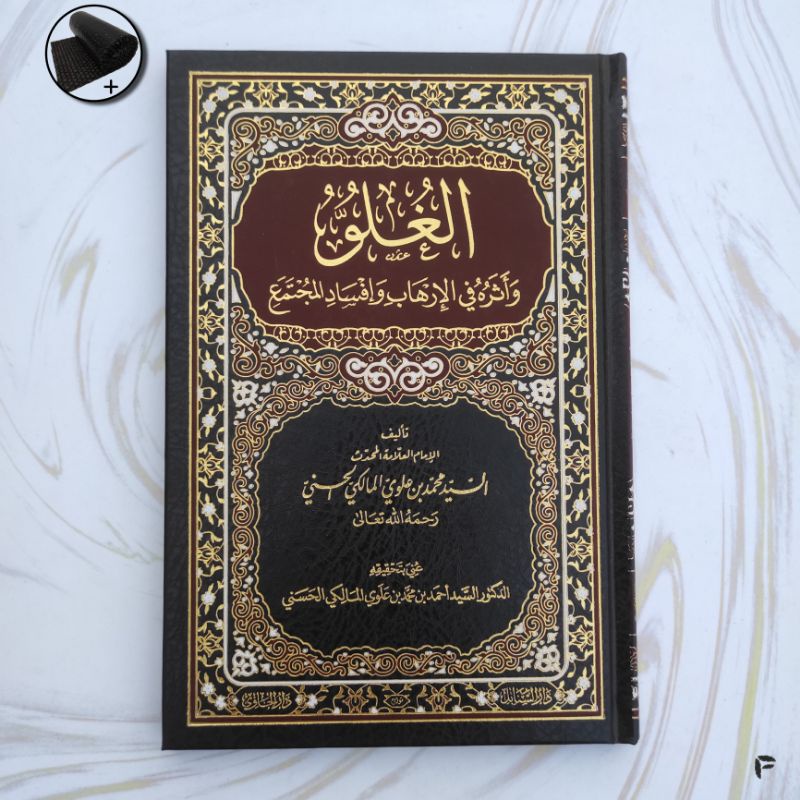 الغُلُوُّ
وَأَثَرُهُ فِي الإِرْهَابِ وَإِفْسَادِ المُجْتَمَعِ
تأليف
الإمام العلامة المحدث
السيد محمد بن علوي المالكي الحسني
رَحِمَهُ اللهُ تَعَالى
عُنِيَ بِتَحْقِيقِهِ
الدكتور السَّيد أحمد بن محمد بن علوي المالكي الحَسَني